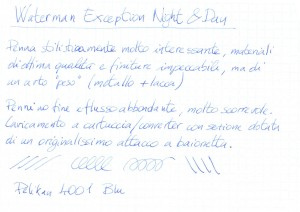 Waterman Exception Night & Day
Penna stilisticamente molto interessante, materiali
di ottima qualità e finiture impeccabile, ma di
un certo "peso" (metallo + lacca)
Pennino fine e flusso abbondante, molto scorrevole.
Caricamento a cartuccia/converter con sezione dotata
di un originalissimo attacco a baionetta.
Pelikan 4001 Blu